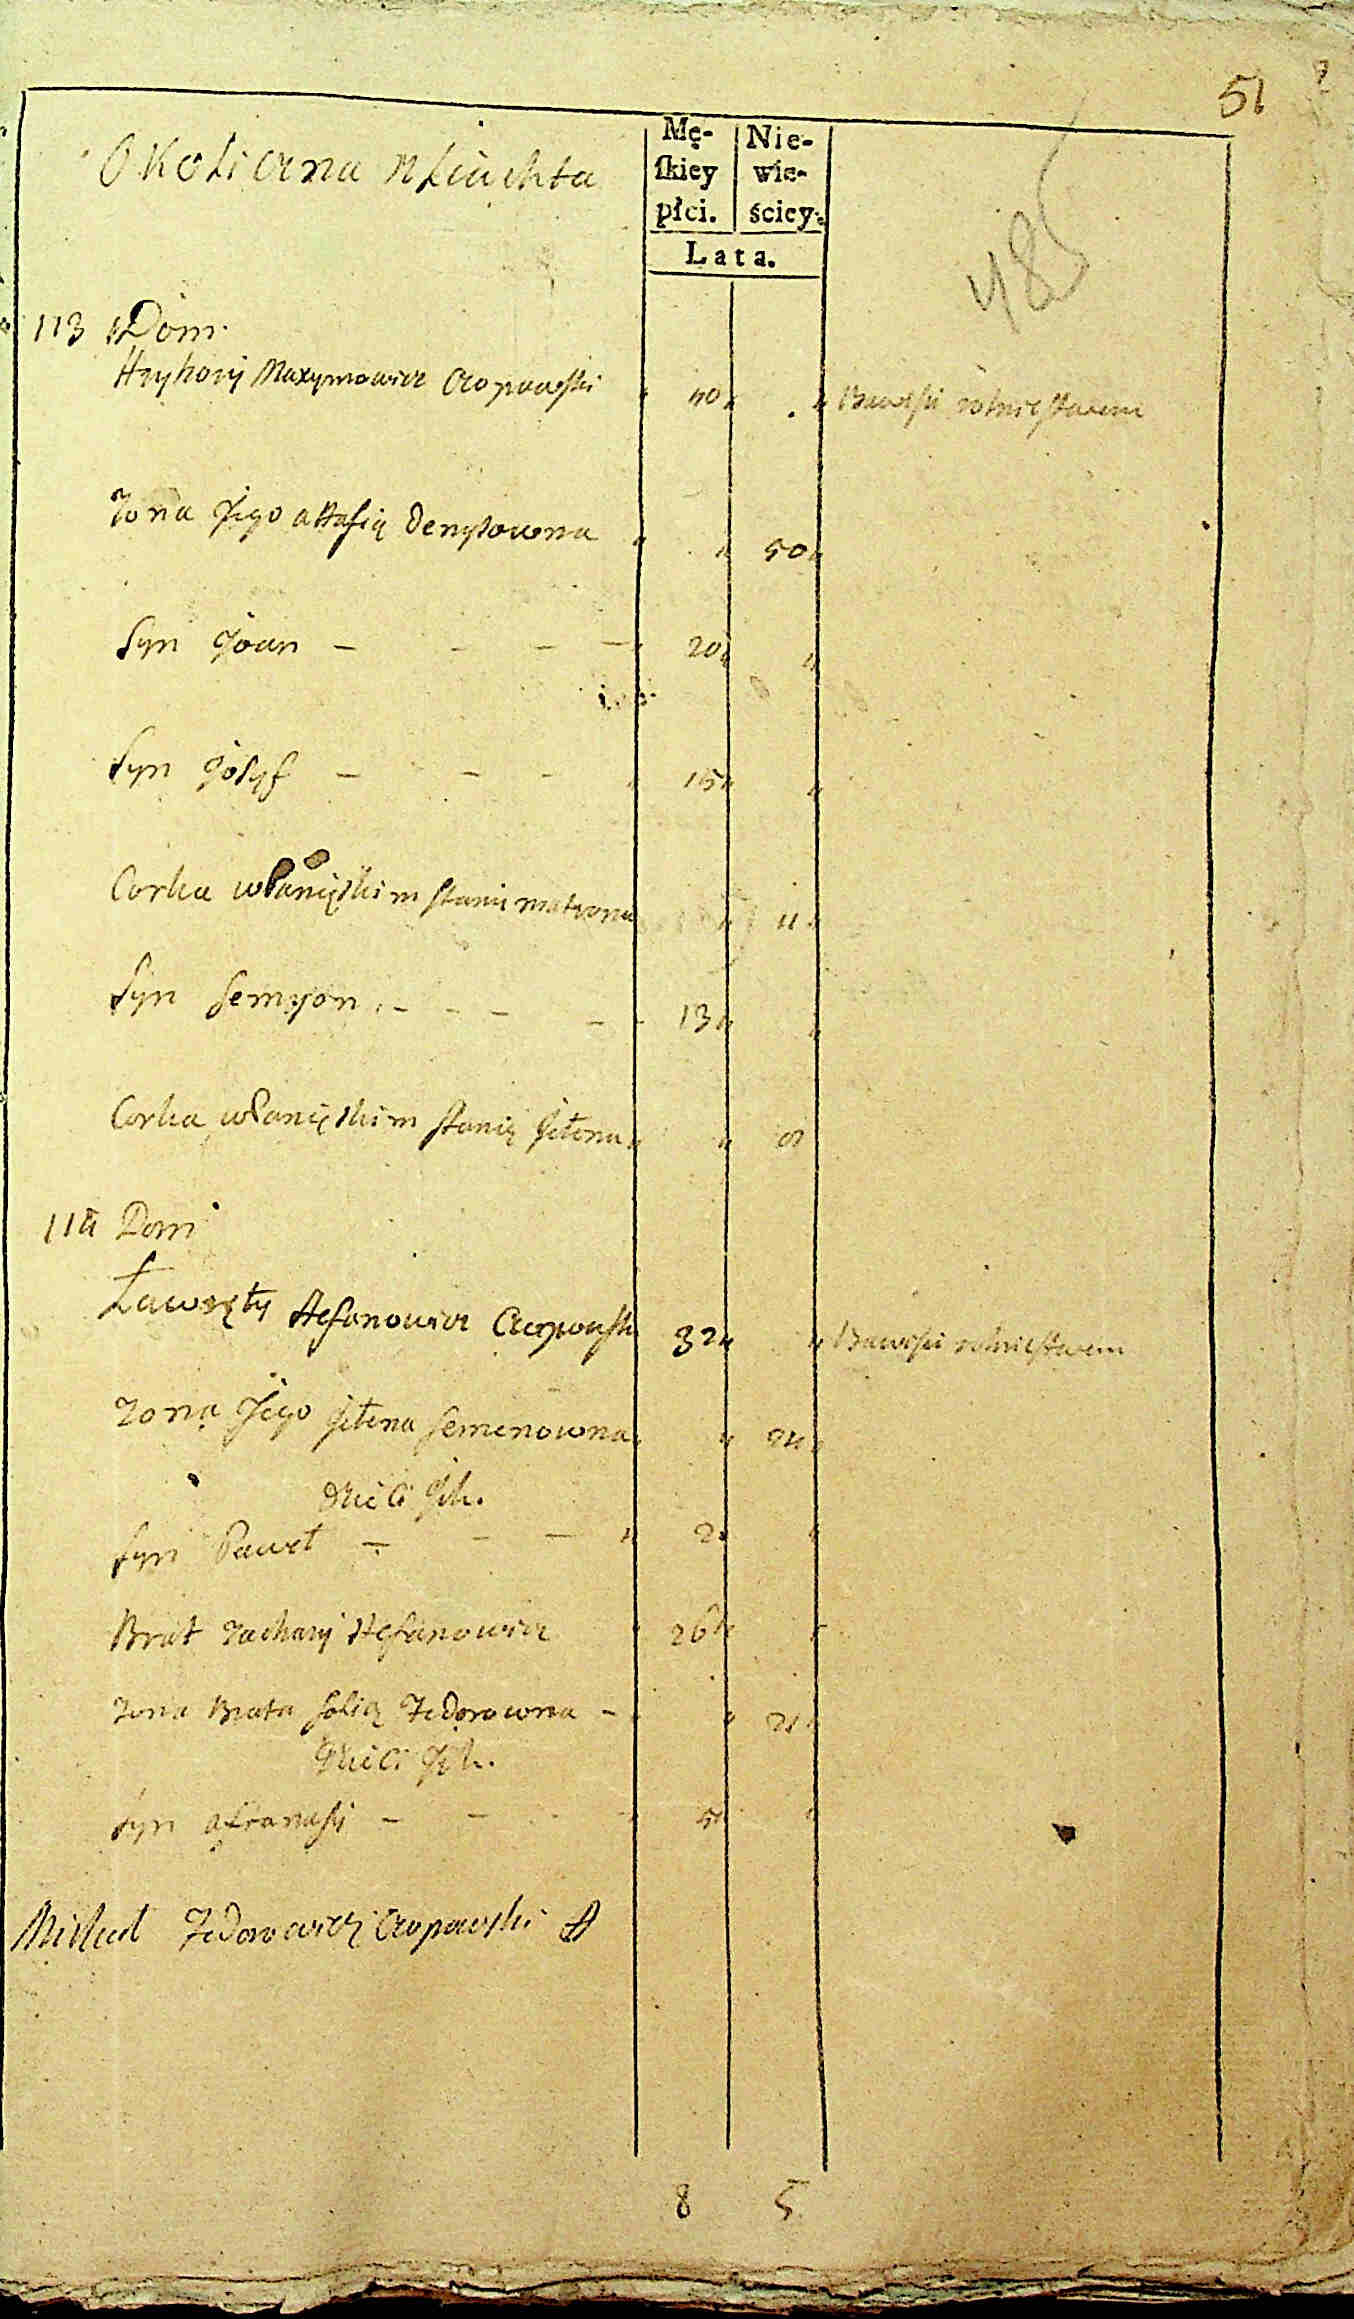 51
485
Okoliczna Szlachta
Mę-
ſkiey
płci.
Nie-
wie-
ściey.
Lata.
113 Dom
Hryhory Maxymowicz Czopowski 50 Bawi się rolnictwem
Żona Jego Nastasia Denysowna 50
Syn Joan 20
Syn Josyf 15
Corka w Panięskim stanie Matrona 11
Syn Semyon 13
Corka w Panięskim stanie Jełena
114 Dom
Ławręty Stefanowicz Czopowski 32 Bawi się rolnictwem
Zona Jego Jełena Semenowna 24
Dzieci Ich.
Syn Paweł 2
Brat Zachary Stefanowicz 26
Zona Brata Fedorowna 21
Dzieci Ich.
Syn Afanasy 5
Michał Fedorowicz Czopowski
8 5